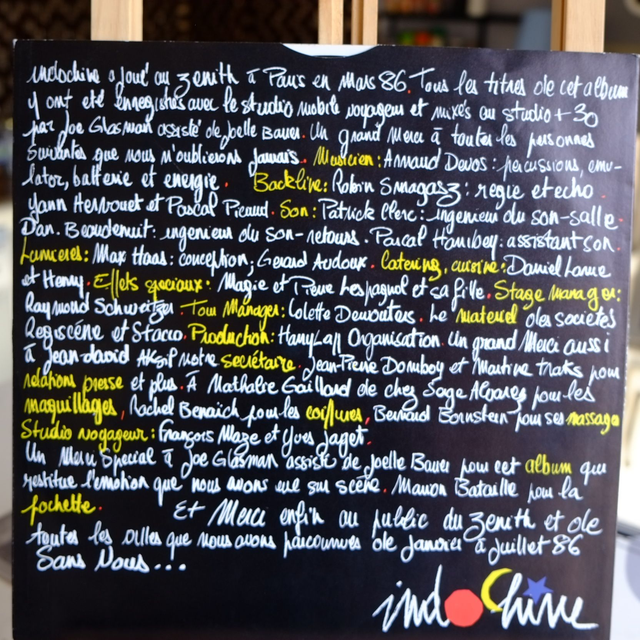 indochine a joué au zenith à Paris en Mars 86. Tous les titres de cet album
y ont été enregistrés avec le studio mobile voyageur et mixés au studio +30
par Joe Glasman assisté de Joelle Bauer. Un grand Merci à toutes les personnes
suivantes que nous n'oublierons jamais. Musicien: Arnaud Devos: percussions, emu-
lator, batterie et energie. Backline: Robin Smagasz: regie et echo.
Yann Hervouet et Pascal Picaud. Son: Patrick Clerc: ingenieur du son-salle.
Dan. Beaudenuit: ingenieur du son-retours. Pascal Hambey: assistant son.
Lumieres: Max Haas: conception, Gerard Audoux. Catering, cuisine: Daniel Lorne
et Henry. Effets speciaux: Magie et Pierre Lespagnol et sa fille. Stage manager:
Raymond Schweitzer. Tour Manager: Colette Dewouters. Le materiel des societés
Regiscène et Stacco. Production: HamyLap Organisation. Un grand Merci aussi
à Jean-david notre secrétaire. Jean-Pierre Domboy et Martine traks pour
relations presse et plus. À Nathalie Gaillard de chez Sage Alvarez pour les
maquillages, Rachel Benaich pour les coiffures, Bernard Bornstein pour ses massages
Studio voyageur: François Maze et Yves Jaget.
Un Merci Special à Joe Glasman assisté de Joelle Bauer pour cet album qui
restitue l'emotion que nous avons eue sur scène. Marion Bataille pour la
pochette. Et Merci enfin au public du zenith et de
toutes les villes que nous avons parcourues de Janvier à Juillet 86
Sans Vous...
indochine